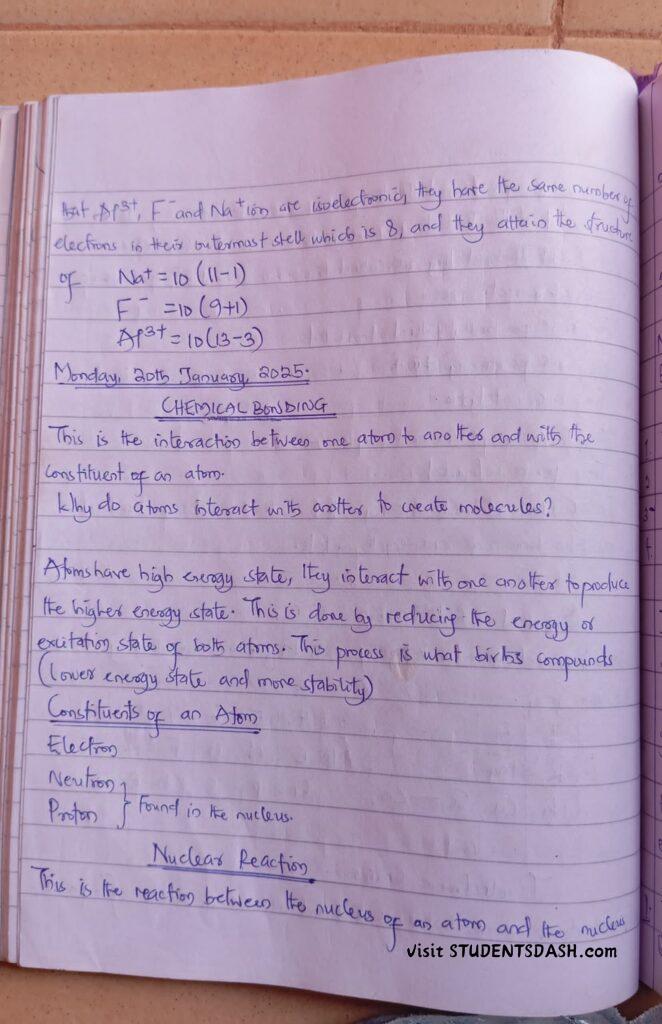 But Al³⁺, F⁻ and Na⁺ ion are isoelectronic, they have the same number of
electrons in their outermost shell which is 8, and they attain the structure
of Na⁺ = 10 (11-1)
F⁻ = 10 (9+1)
Al³⁺ = 10 (13-3)
Monday, 20th January, 2025.
CHEMICAL BONDING
This is the interaction between one atom to another and with the
constituent of an atom.
Why do atoms interact with another to create molecules?
Atoms have high energy state, they interact with one another to produce
the higher energy state. This is done by reducing the energy or
excitation state of both atoms. This process is what births compounds
(lower energy state and more stability)
Constituents of an Atom
Electron
Neutron
Proton } Found in the nucleus.
Nuclear Reaction
This is the reaction between the nucleus of an atom and the nucleus
visit STUDENTSDASH.com